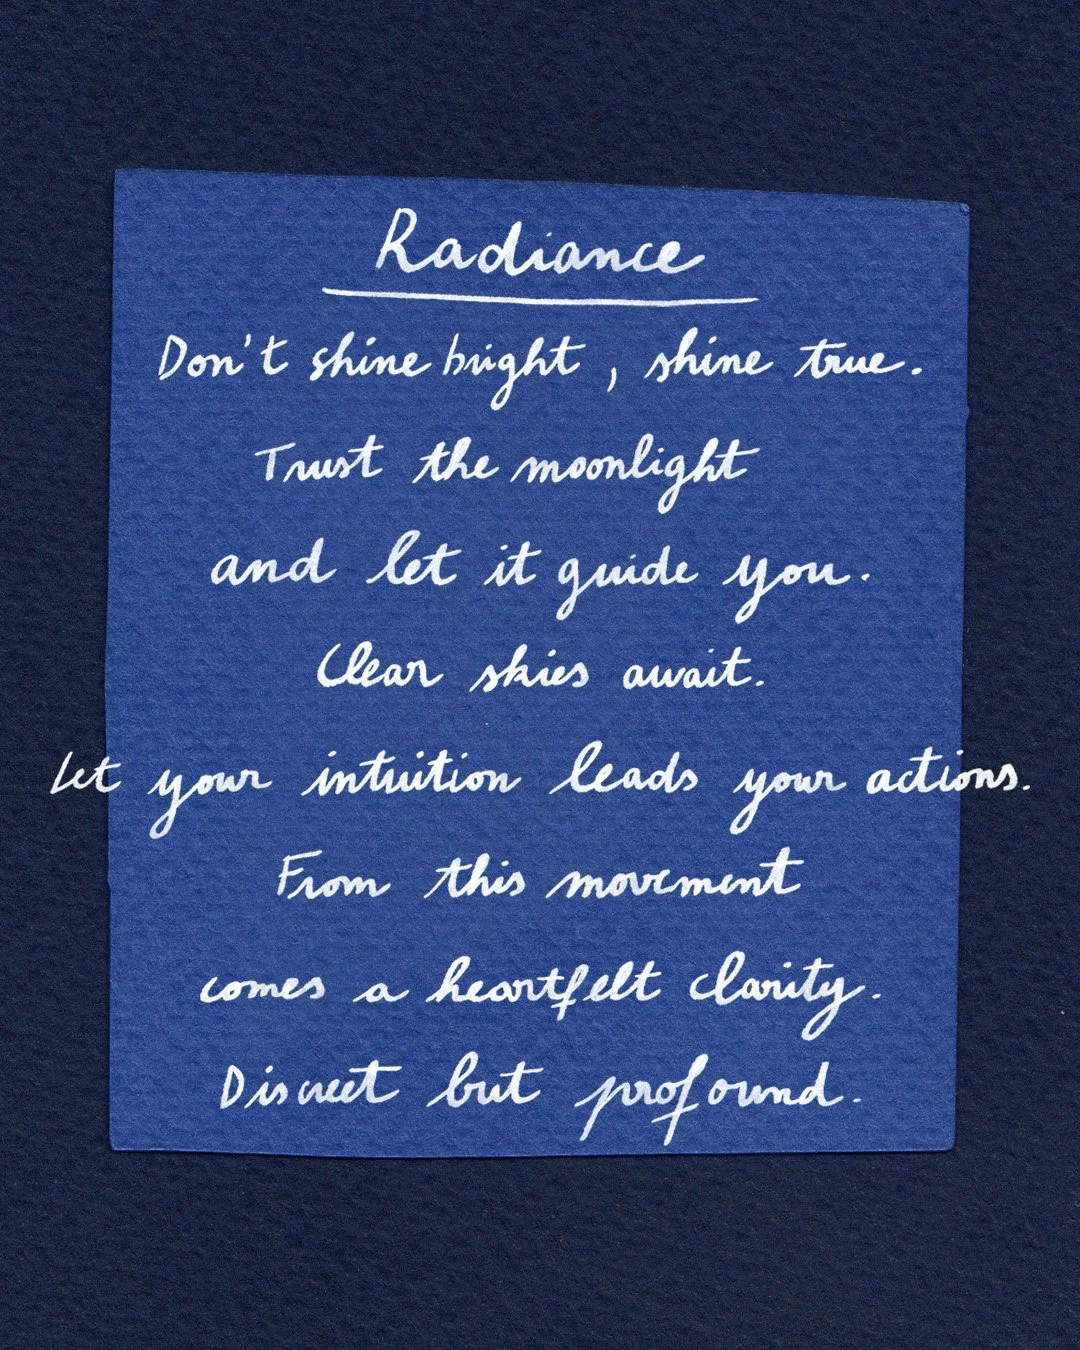 Radiance
Don't shine bright, shine true.
Trust the moonlight
and let it guide you.
Clear skies await.
Let your intuition leads your actions.
From this movement
comes a heartfelt clarity.
Discreet but profound.